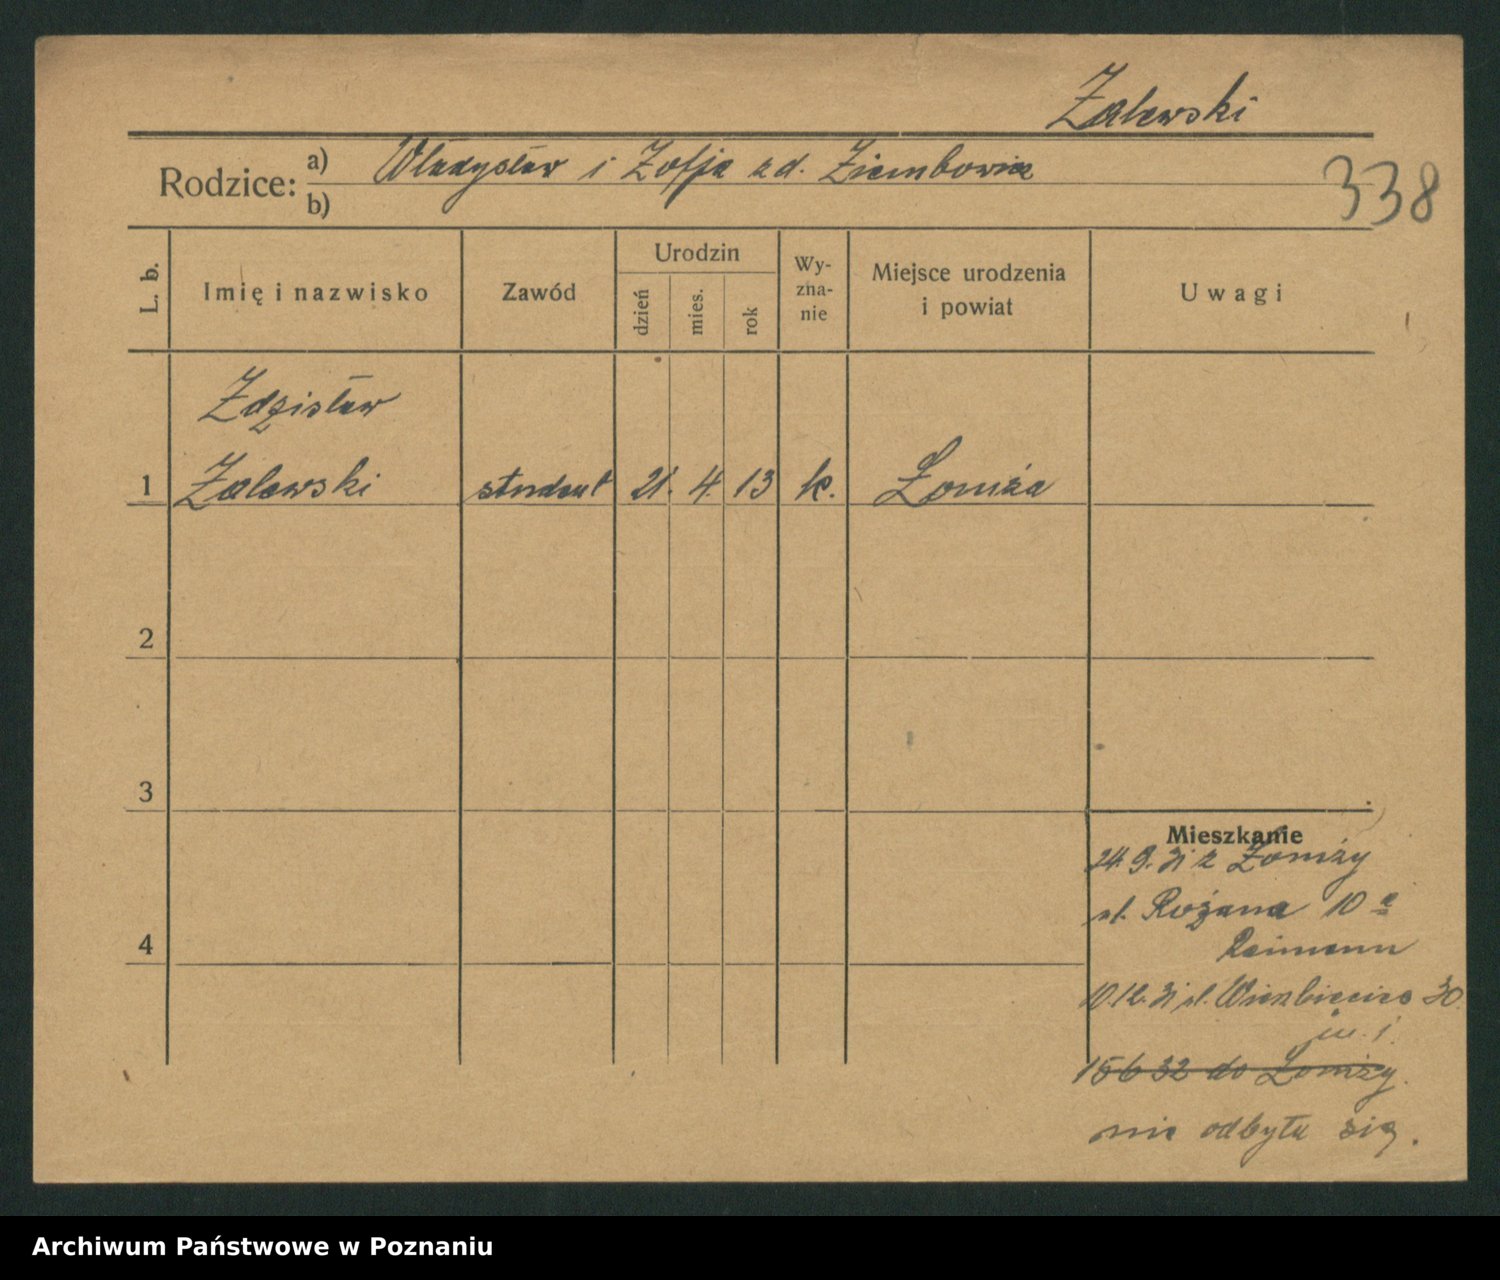 Zalewski
Rodzice: a) Władysław i Zofja z d. Ziembowicz
b)
338
L. b.
Imię i nazwisko
Zawód
Urodzin
dzień
mies.
rok
Wy-
zna-
nie
Miejsce urodzenia
i powiat
Uwagi
Zdzisław
1 Zalewski student 21. 4. 13 k. Łomża
2
3
4
Mieszkanie
24. 9. 31 z Łomży
ul. Różana 10 a
Reimann
10.12.31 ul. Wierzbięcice 30
15 6 32 do Łomży.
nie odbyła się.
Archiwum Państwowe w Poznaniu